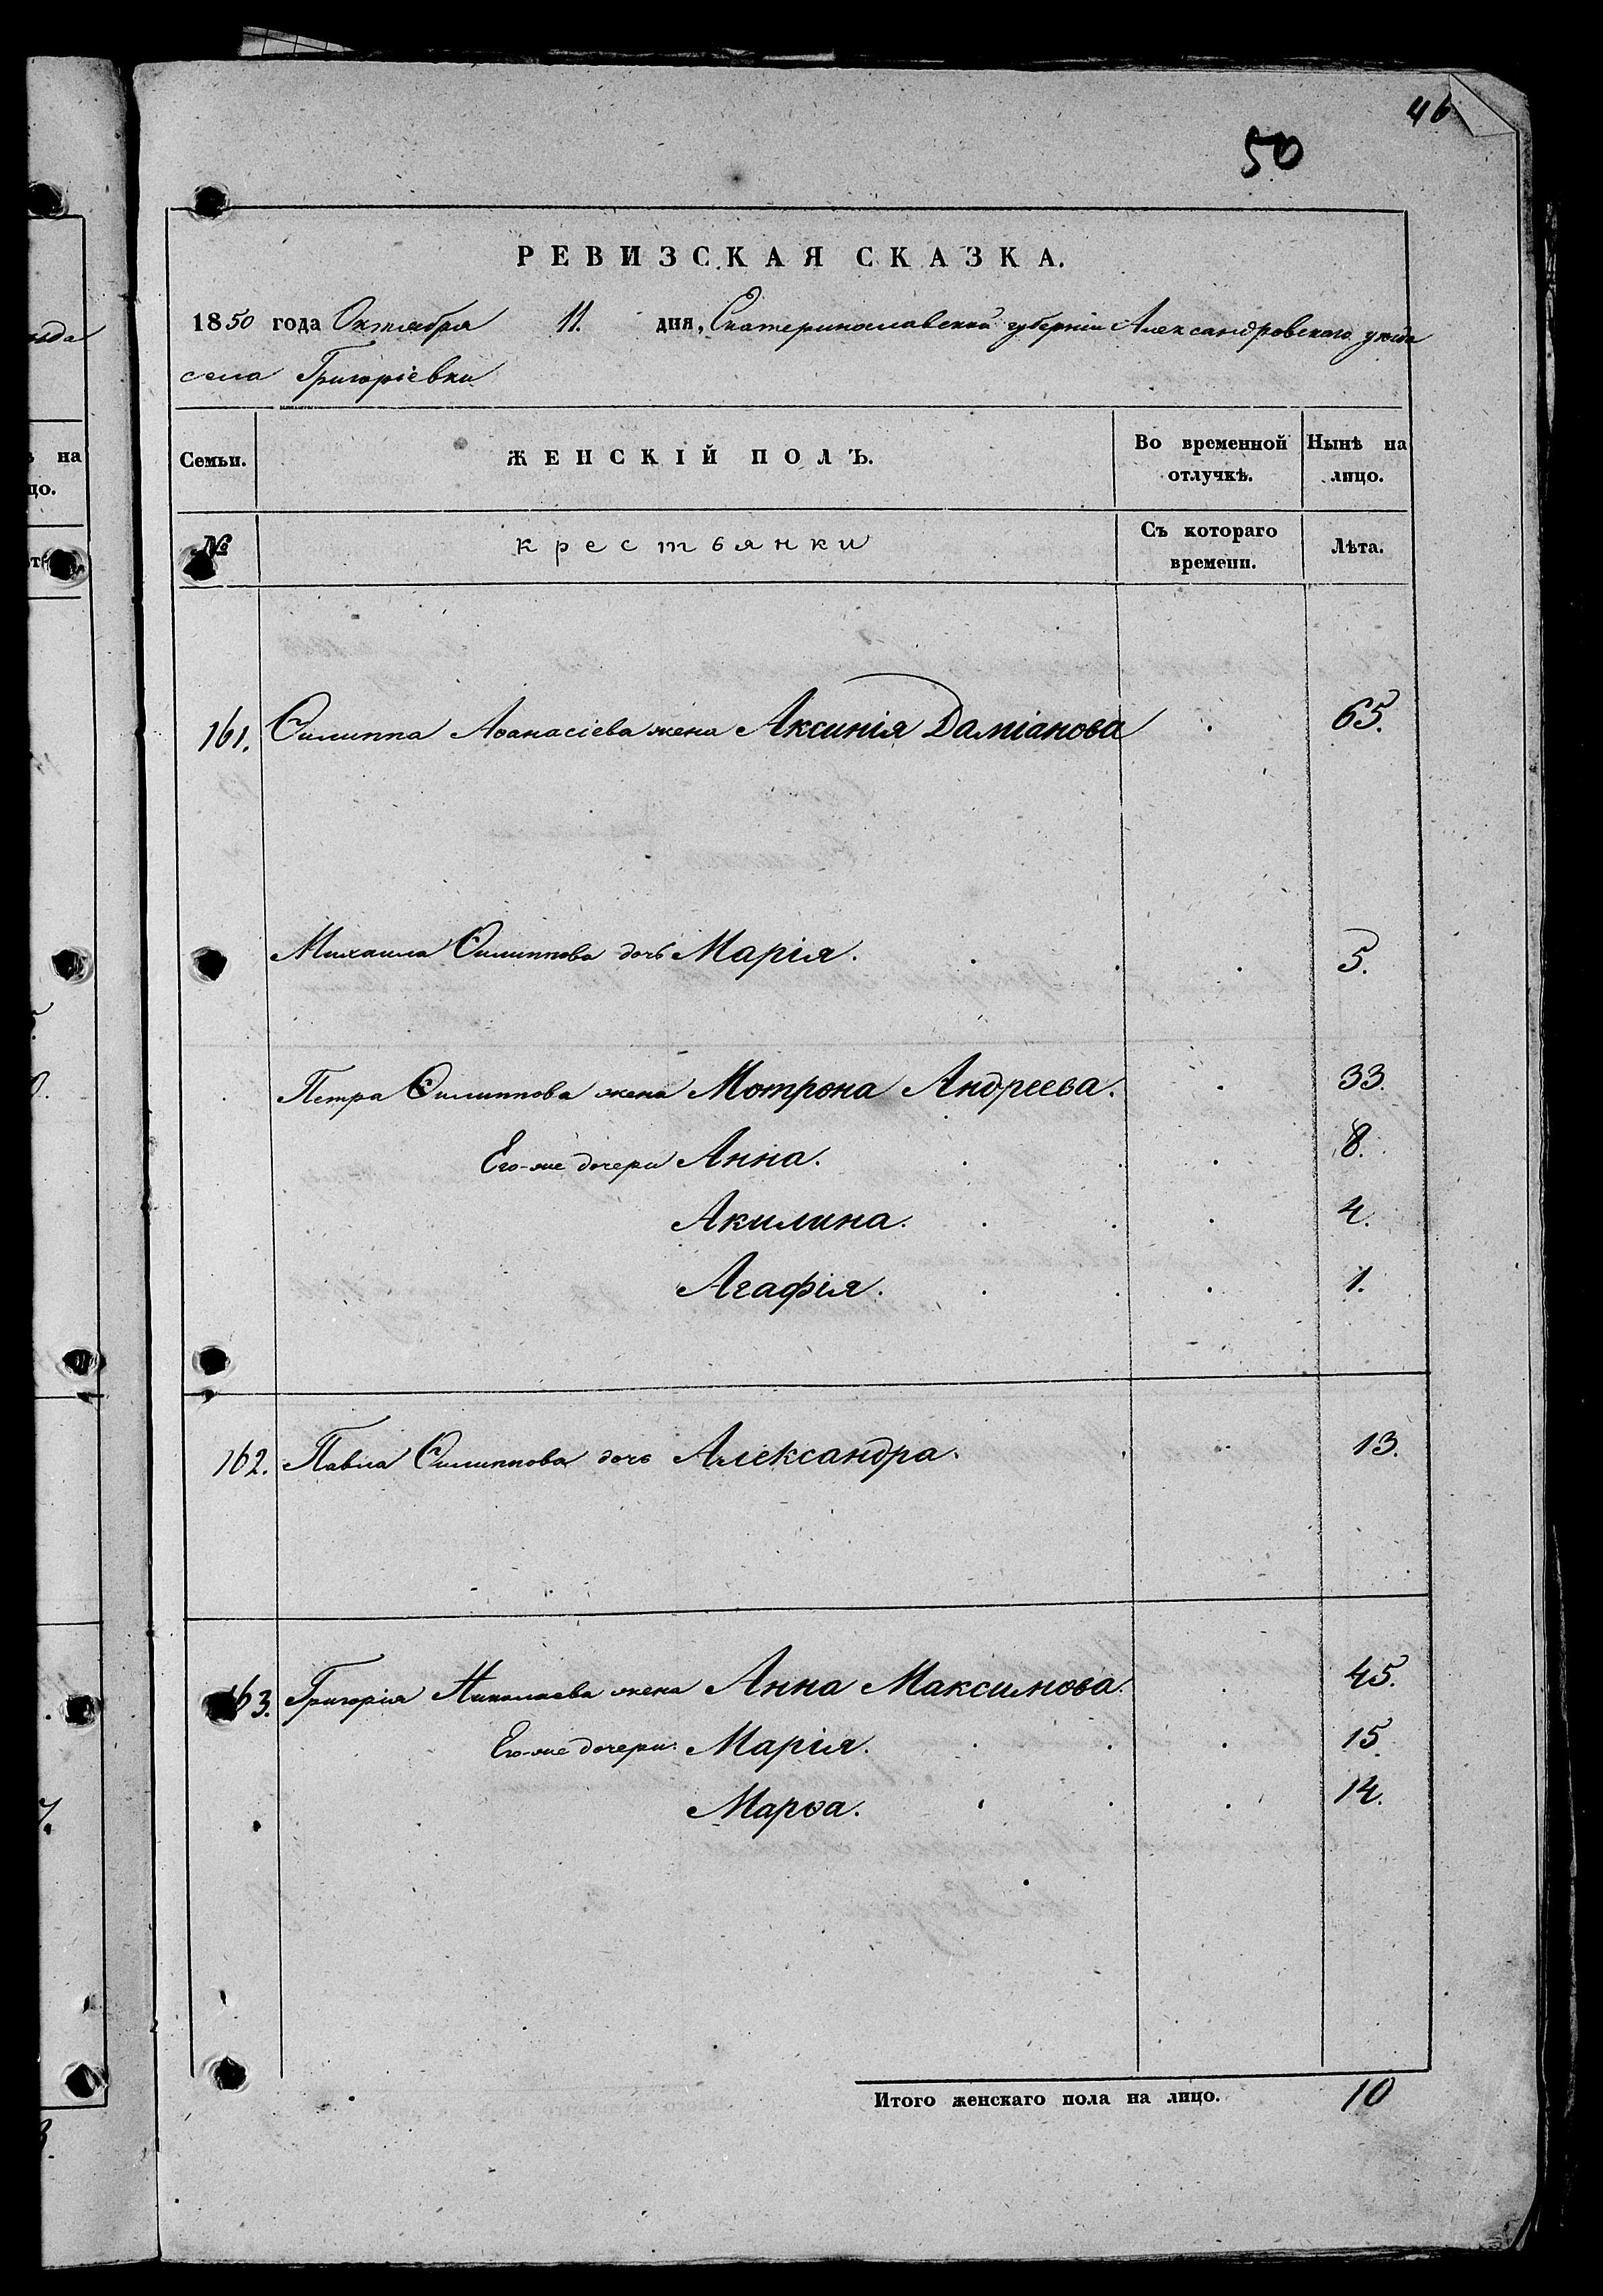 46
50
РЕВИЗСКАЯ СКАЗКА.
1850 года Октября 11. дня, Екатеринославской губерніи Александровскаго уѣзда
села Григоріевки
Семьи. ЖЕНСКІЙ ПОЛЪ. Во временной отлучкѣ. Нынѣ на лицо.
№ крестьянки Съ котораго времени. Лѣта.
161. Филиппа Аѳанасіева жена Аксинія Даміанова 65.
Михаила Филиппова дочь Марія. 5.
Петра Филиппова жена Мотрона Андреева. 33.
Его-же дочери Анна. 8.
Акилина. 4.
Агафія. 1.
162. Павла Филиппова дочь Александра. 13.
163. Григорія Николаева жена Анна Максимова. 45.
Его-же дочери Марія. 15.
Марѳа. 14.
Итого женскаго пола на лицо. 10